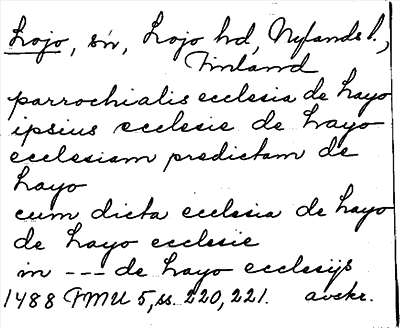 Lojo, sn, Lojo hd, Nylands l.,
Finland
parrochialis ecclesia de hayo
ipsius ecclesie de hayo
ecclesiam predictam de
hayo
cum dicta ecclesia de hayo
de hayo ecclesie
in --- de hayo ecclesijs
1488 FMU 5, ss. 220, 221. avskr.